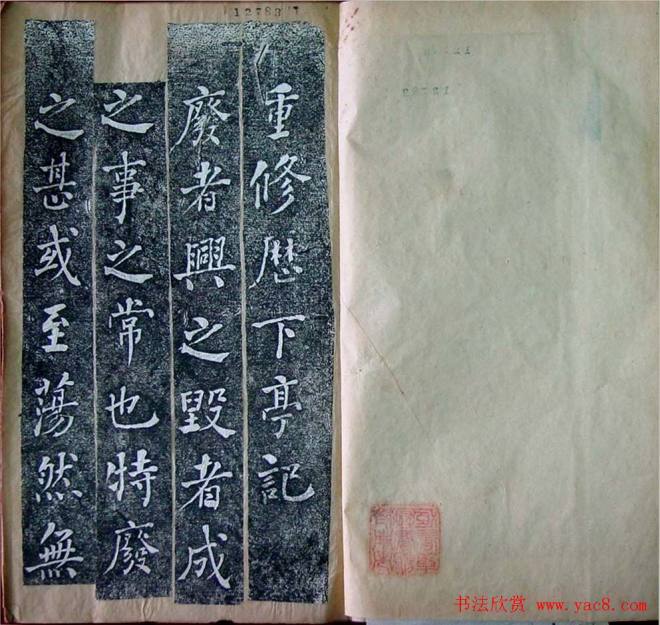 重修歷下亭記
廢者興之毀者成
之事之常也特廢
之甚或至蕩然無
書法欣赏 www.yac8.com